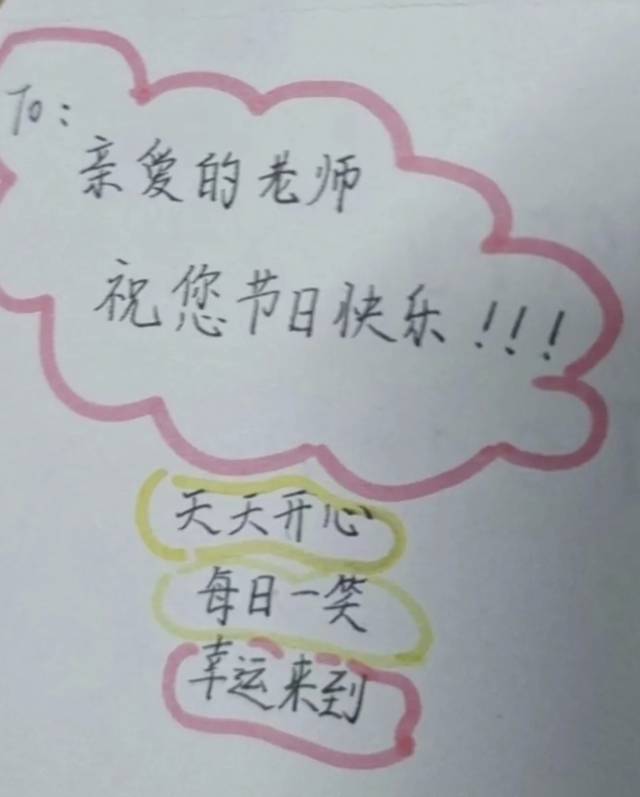 To:
亲爱的老师
祝您节日快乐!!!
天天开心
每日一笑
幸运来到